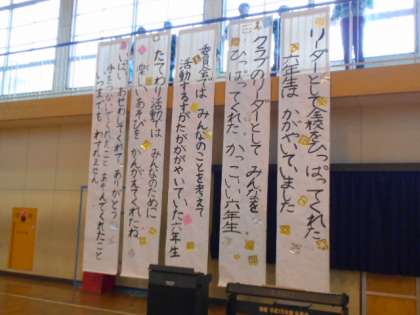 リーダーとして全校をひっぱってくれた
六年生は かがやいていました
クラブのリーダーとして みんなを
ひっぱってくれた かっこいい六年生
委員会では みんなのことを考えて
活動するすがたがかがやいていた六年生
たてわり活動では みんなのために
楽しいあそびを かんがえてくれたね
いっぱい あそんでくれて ありがとう
くれたこと
いつまでも わすれません